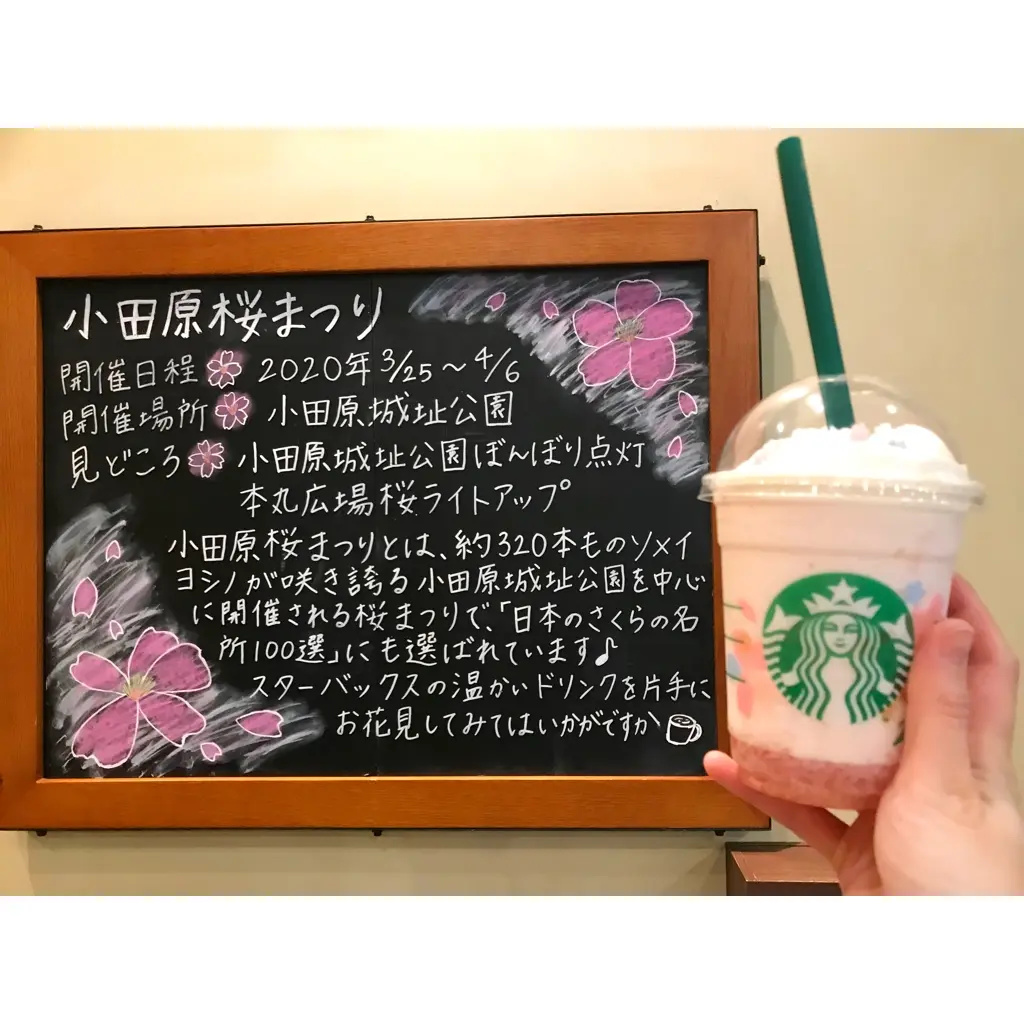 小田原桜まつり
開催日程 2020年 3/25～4/6
開催場所 小田原城址公園
見どころ 小田原城址公園ぼんぼり点灯
本丸広場桜ライトアップ
小田原桜まつりとは、約320本ものソメイ
ヨシノが咲き誇る小田原城址公園を中心
に開催される桜まつりで、「日本のさくらの名
所100選」にも選ばれています♪
スターバックスの温かいドリンクを片手に
お花見してみてはいかがですか